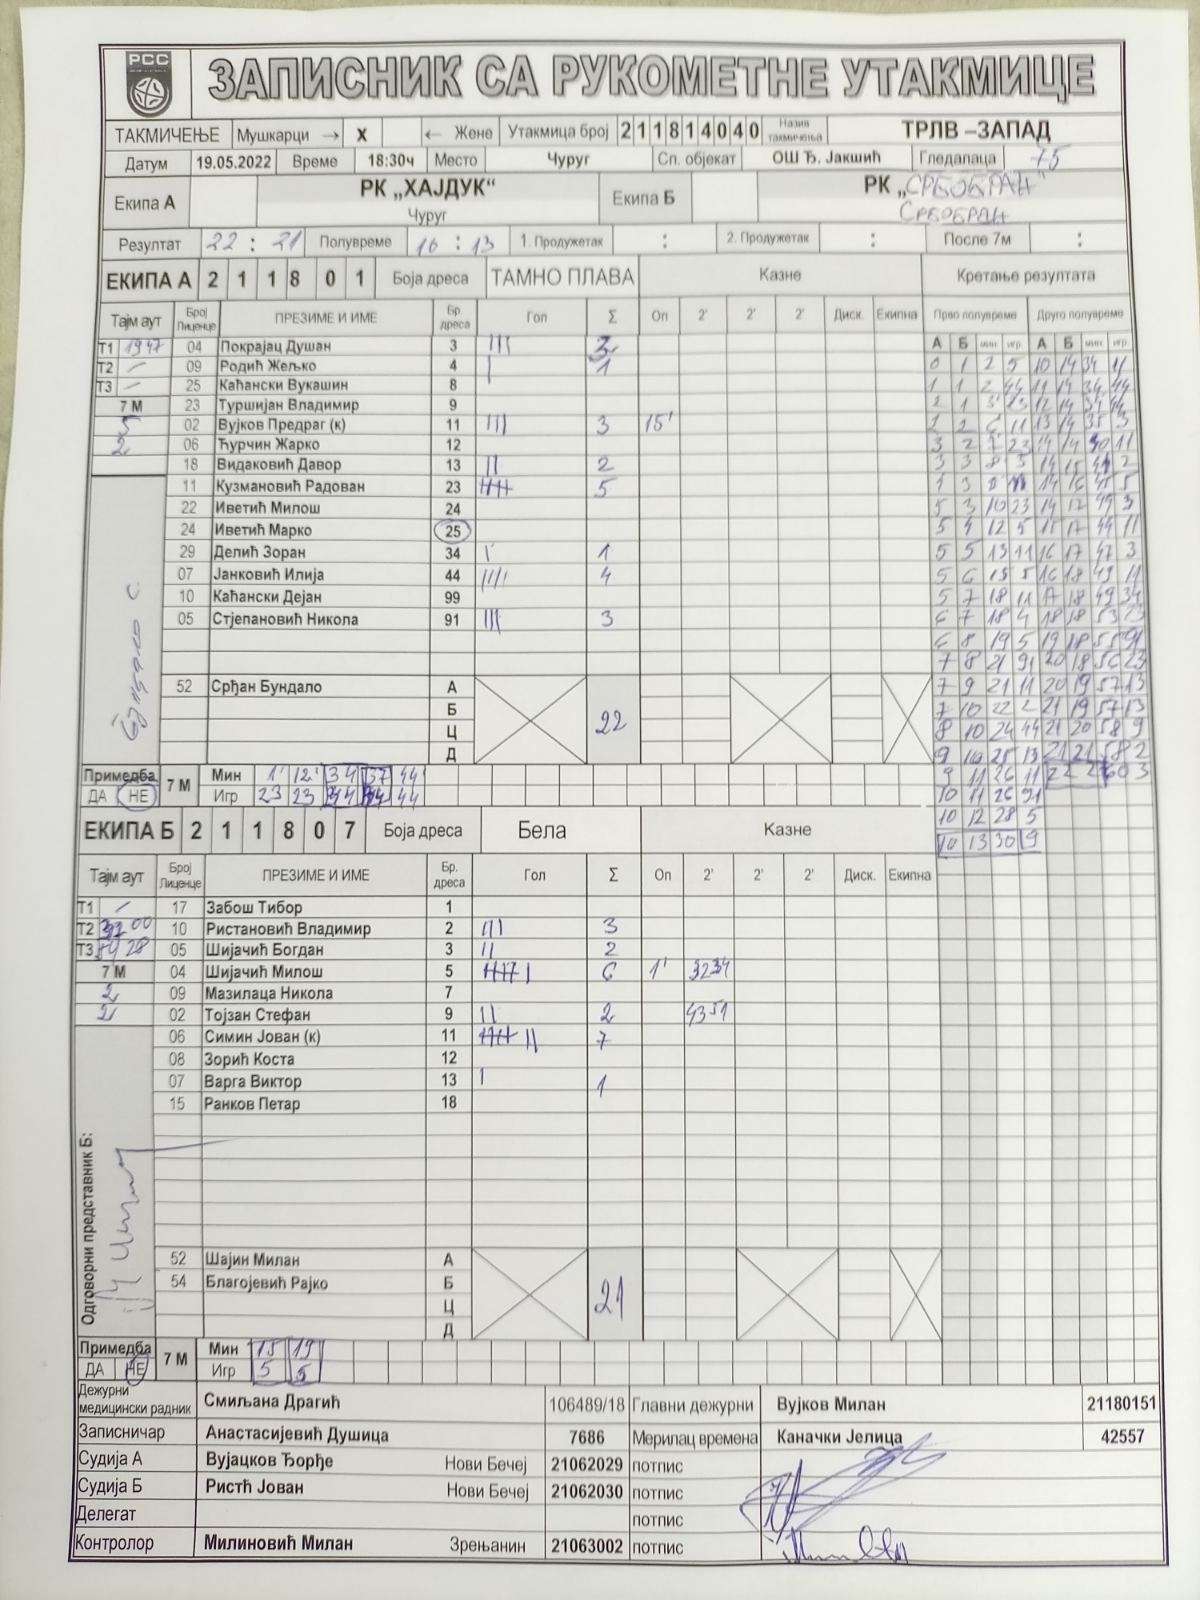 РСС
ЗАПИСНИК СА РУКОМЕТНЕ УТАКМИЦЕ
ТАКМИЧЕЊЕ Мушкарци → X ← Жене Утакмица број 2 1 1 8 1 4 0 4 0 Назив такмичења ТРЛВ –ЗАПАД
Датум 19.05.2022 Време 18:30ч Место Чуруг Сп. објекат ОШ Ђ. Јакшић Гледалаца 75
Екипа А РК „ХАЈДУК“ Екипа Б РК „СРБОБРАН"
Чуруг СРБОБРАН
Резултат 22 : 21 Полувреме 10 : 13 1. Продужетак : 2. Продужетак : После 7м :
ЕКИПА А 2 1 1 8 0 1 Боја дреса ТАМНО ПЛАВА Казне Кретање резултата
Тајм аут Број Лиценце ПРЕЗИМЕ И ИМЕ Бр. дреса Гол Σ Оп 2' 2' 2' Диск. Екипна Прво полувреме Друго полувреме
А Б мин игр. А Б мин игр.
Т1 1947 04 Покрајац Душан 3 III 3
Т2 – 09 Родић Жељко 4 I 1
Т3 – 25 Каћански Вукашин 8
7 М 23 Туршијан Владимир 9
5 02 Вујков Предраг (к) 11 III 3 15'
2 06 Ћурчин Жарко 12
18 Видаковић Давор 13 II 2
11 Кузмановић Радован 23 IIII 5
22 Иветић Милош 24
24 Иветић Марко 25
29 Делић Зоран 34 I 1
07 Јанковић Илија 44 IIII 4
10 Каћански Дејан 99
05 Стјепановић Никола 91 III 3
52 Срђан Бундало А
Б
22
Ц
Д
Примедба 7 М Мин 1' 12' 34 37 44
ДА НЕ Игр 23 23 44 44 44
0 1 2 5 10 14 34 11
1 1 2 44 11 14 34 44
5 4 12 5 15 17 44 11
5 5 13 11 16 17 47 3
5 6 15 5 16 18 49 11
5 7 18 11 17 18 49 34
6 7 18 4 18 18 53 13
6 8 19 5 19 18 55 91
7 8 21 91 20 18 56 23
7 9 21 11 20 19 57 13
7 10 22 2 21 19 57 13
8 10 24 44 21 20 58 9
9 10 25 13 21 21 58 2
9 11 26 11 22 21 60 3
10 11 26 91
10 12 28 5
10 13 30 9
ЕКИПА Б 2 1 1 8 0 7 Боја дреса Бела Казне
Тајм аут Број Лиценце ПРЕЗИМЕ И ИМЕ Бр. дреса Гол Σ Оп 2' 2' 2' Диск. Екипна
Т1 – 17 Забош Тибор 1
Т2 10 Ристановић Владимир 2 III 3
Т3 05 Шијачић Богдан 3 II 2
7 М 04 Шијачић Милош 5 IIIII I 6 1' 3234
2 09 Мазилаца Никола 7
2 02 Тојзан Стефан 9 II 2 4351
06 Симин Јован (к) 11 IIIII II 7
08 Зорић Коста 12
07 Варга Виктор 13 I 1
15 Ранков Петар 18
Одговорни представник Б:
52 Шајин Милан А
54 Благојевић Рајко Б
21
Ц
Д
Примедба 7 М Мин 15 19
ДА НЕ Игр 5 5
Дежурни медицински радник Смиљана Драгић 106489/18 Главни дежурни Вујков Милан 21180151
Записничар Анастасијевић Душица 7686 Мерилац времена Каначки Јелица 42557
Судија А Вујацков Ђорђе Нови Бечеј 21062029 потпис
Судија Б Ристћ Јован Нови Бечеј 21062030 потпис
Делегат потпис
Контролор Милиновић Милан Зрењанин 21063002 потпис